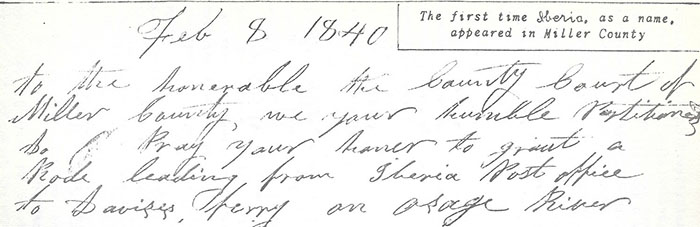 Feb 8 1840
The first time Iberia, as a name,
appeared in Miller County
to the honerable the County Court of
Miller County, we your humble Petitioners
Do Pray your honer to grant a
Rode leading from Iberia Post office
to Davises ferry on Osage River